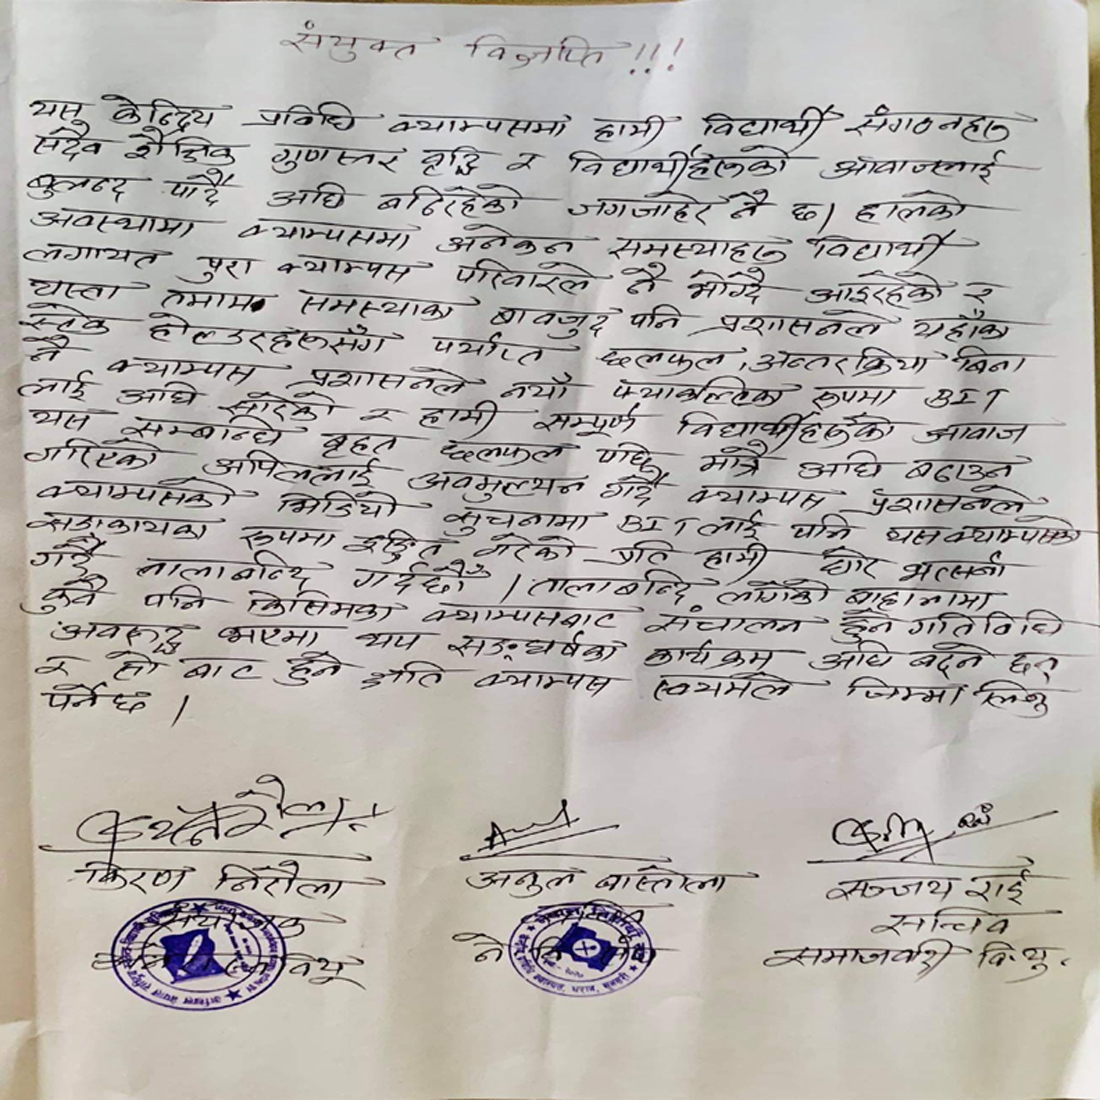 संयुक्त विज्ञप्ति !!!
यस केन्द्रिय प्रविधि क्याम्पसमा हामी विद्यार्थी संगठनहरु
सदैव शैक्षिक गुणस्तर वृद्धि र विद्यार्थीहरुको आवाजलाई
बुलन्द पार्दै अघि बढिरहेको जगजाहेर नै छ। हालको
अवस्थामा क्याम्पसमा अनेकन समस्याहरु विद्यार्थी
लगायत पुरा क्याम्पस परिवारले नै भोग्दै आइरहेको र
यस्ता तमाम समस्याका बावजुद पनि प्रशासनले यहाँका
स्टेक होल्डरहरुसँग पर्याप्त छलफल, अन्तरक्रिया बिना
नै क्याम्पस प्रशासनले नयाँ फ्याकल्टिका रूपमा BIT
लाई अघि सारेको र हामी सम्पूर्ण विद्यार्थीहरुको आवाज
यस सम्बन्धि बृहत छलफल पछि मात्रै अघि बढाउन
गरिएको अपिललाई अवमुल्यन गर्दै क्याम्पस प्रशासनले
क्याम्पसको भिडियो सुचनामा BIT लाई पनि यस क्याम्पसको
सङकायका रूपमा इङ्कित गरेको प्रति हामी घोर भत्सर्ना
गर्दै तालाबन्दि गर्दछौँ । तालाबन्दि लगेको बाहानामा
कुनै पनि किसिमका क्याम्पसबाट संचालन हुने गतिविधि
अवरुद्ध भएमा थप सङ्घर्षका कार्यक्रम अघि बढ्ने छन्
र सो बाट हुने क्षति क्याम्पस स्वयमले जिम्मा लिनु
पर्नेछ ।
किरण निरौला
अतुल बास्तोला
सञ्जय राई
सचिव
समाजवादी वि.यु.